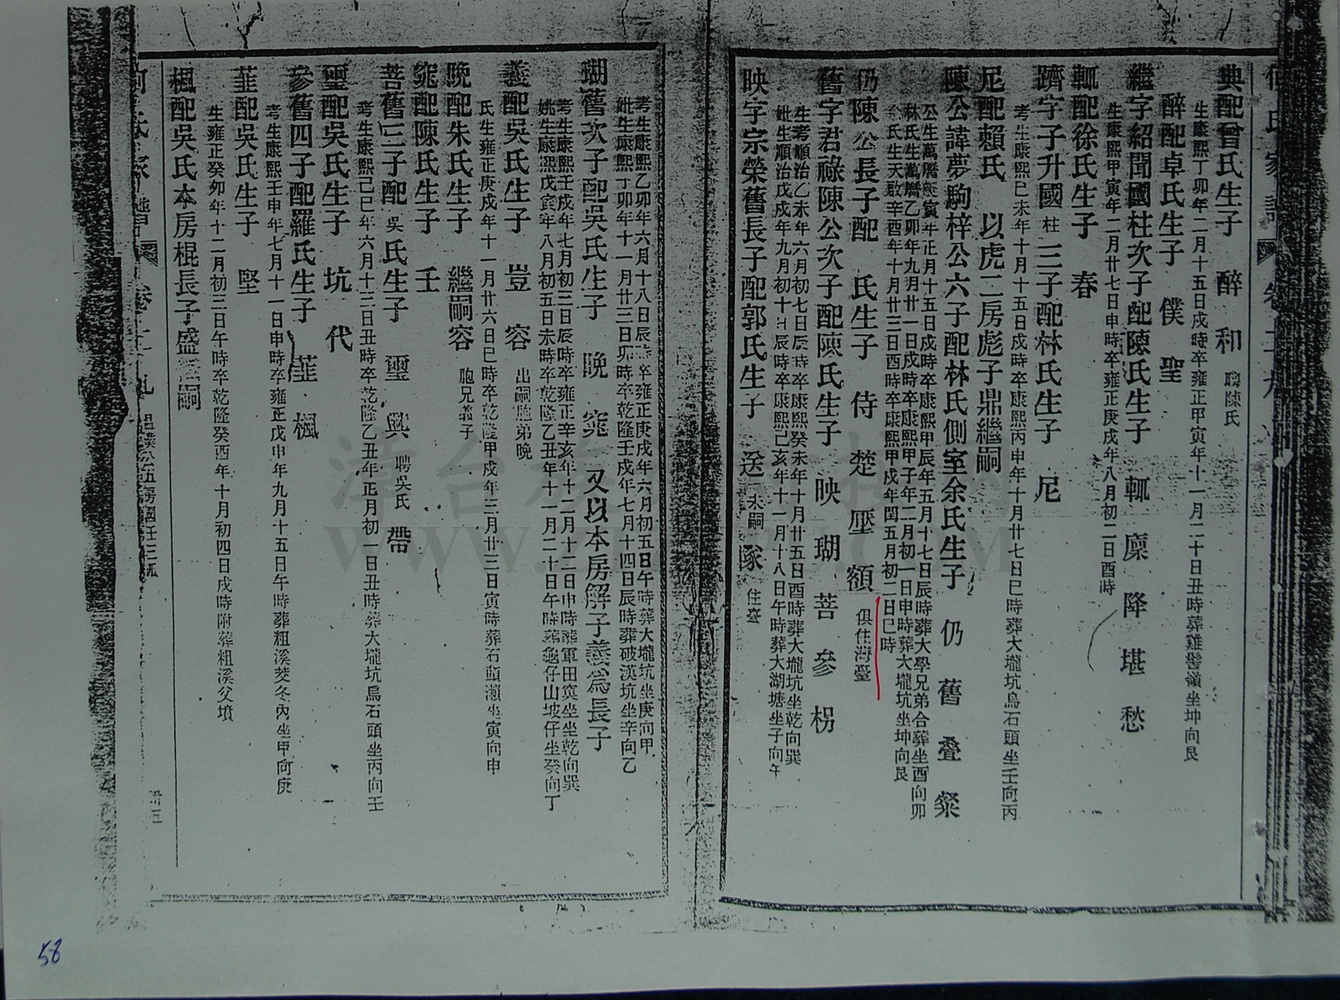 典配曾氏生子 醉 和 聘陳氏
生康熙丁卯年二月十五日戌時卒雍正甲寅年十一月二十日丑時葬雞髻嶺坐坤向艮
醉配卓氏生子 僕 聖
繼字紹聞國柱次子配陳氏生子 輒 廩 降 堪 愁
生康熙甲寅年二月廿七日申時卒雍正庚戌年八月初二日酉時
輒配徐氏生子 春
躋字子升國柱三子配林氏生子 尼
考生康熙己未年十月十五日戌時卒康熙丙申年十月廿七日巳時葬大壠坑烏石頭坐壬向丙
尼配賴氏 以虎二房彪子鼎繼嗣
陳公諱夢駒梓公六子配林氏側室余氏生子 仍 舊 疊 粲
公生萬曆寅年正月十五日戌時卒康熙甲辰年五月十七日辰時葬大學兄弟合葬坐酉向卯
林氏生萬曆乙卯年九月廿一日戌時卒康熙甲子年二月初一日申時葬大壠坑坐坤向艮
余氏生天啟辛酉年十月廿三日酉時卒康熙甲戌年閏五月初二日巳時
仍陳公長子配 氏生子 侍 楚 壓 額 俱住灣臺
舊字君祿陳公次子配陳氏生子 映 瑚 菩 參 楞
生考順治乙未年六月初七日辰時卒康熙癸未年十月廿五日酉時葬大壠坑坐乾向巽
妣生順治戊戌年九月初十日辰時卒康熙己亥年十一月十八日午時葬大湖塘坐子向午
映字宗榮舊長子配郭氏生子 送 未嗣 隊 住臺
瑚舊次子配吳氏生子 晚 窕 又以本房解子義為長子
考生康熙乙卯年六月十八日辰時卒雍正庚戌年六月初五日午時葬大壠坑坐庚向甲
妣生康熙丁卯年十一月廿三日卯時卒乾隆壬戌年七月十四日辰時葬破漢坑坐辛向乙
義配吳氏生子 豈 容 出嗣胞弟晚
考生康熙壬戌年七月初三日辰時卒雍正辛亥年十二月十二日申時葬軍田寞坐坐乾向巽
姚生康熙戊寅年八月初五日未時卒乾隆乙丑年十一月二十日午時葬龜仔山坡仔坐癸向丁
晚配朱氏生子 繼嗣容 胞兄義子
氏生雍正庚戌年十一月廿六日巳時卒乾隆甲戌年三月廿三日寅時葬石頭瀨坐寅向申
窕配陳氏生子 壬
菩舊三子配吳氏生子 璽 興 聘吳氏 帶
考生康熙己巳年六月十三日丑時卒乾隆乙丑年正月初一日丑時葬大壠坑烏石頭坐丙向壬
璽配吳氏生子 坑 代
參舊四子配羅氏生子 菫 楓
考生康熙壬申年七月十一日申時卒雍正戊申年九月十五日午時葬粗溪芰冬內坐甲向庚
菫配吳氏生子 堅
生雍正癸卯年十二月初三日午時卒乾隆癸酉年十月初四日戌時附葬粗溪父墳
楓配吳氏本房棍長子盛嗣
何氏家譜
WWW. .COM
58